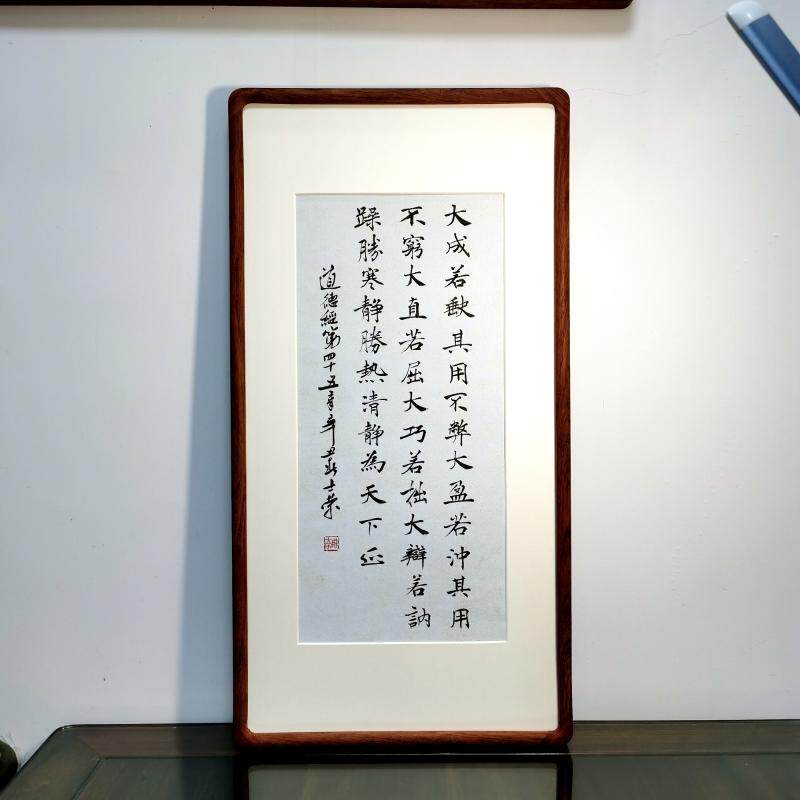 大成若缺其用不弊大盈若沖其用
不窮大直若屈大巧若拙大辯若訥
躁勝寒靜勝熱清靜為天下正
道德經第四十五章辛丑秋士榮